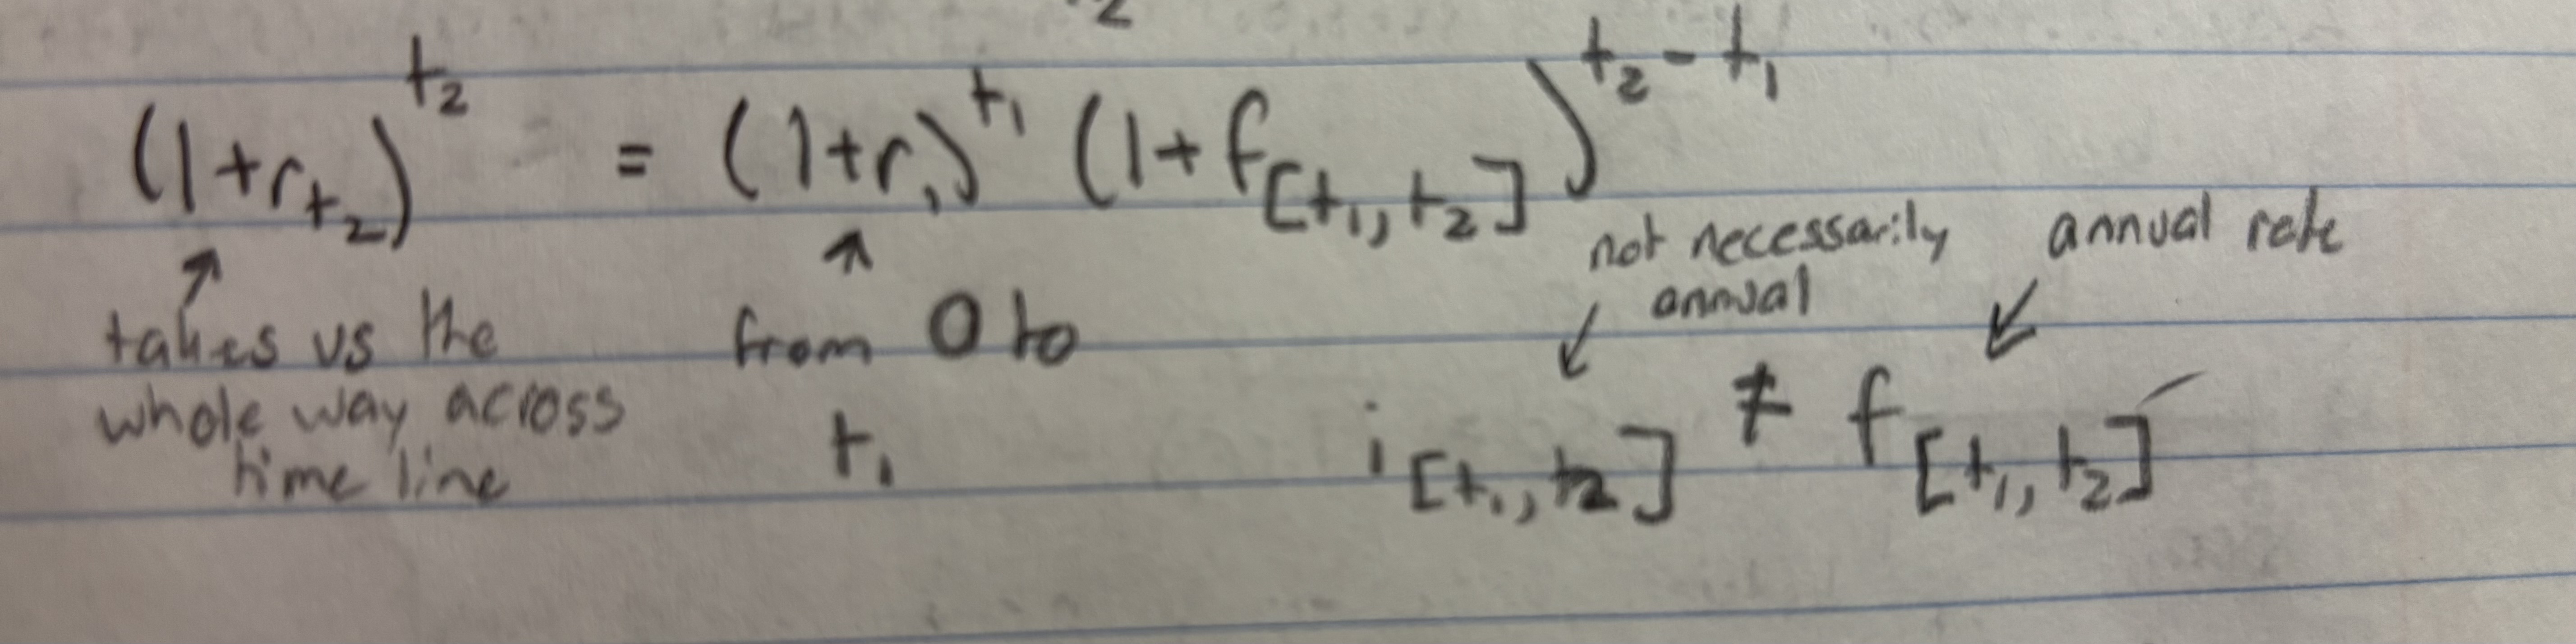 2
(1+r_{t_2})^{t_2} = (1+r_1)^{t_1} (1+f_{[t_1,t_2]})^{t_2-t_1}
↑ takes us the
whole way across
time line
↑ from 0 to
t_1
not necessarily
annual ↓
annual rate ↙
i_{[t_1,t_2]} ≠ f_{[t_1,t_2]}